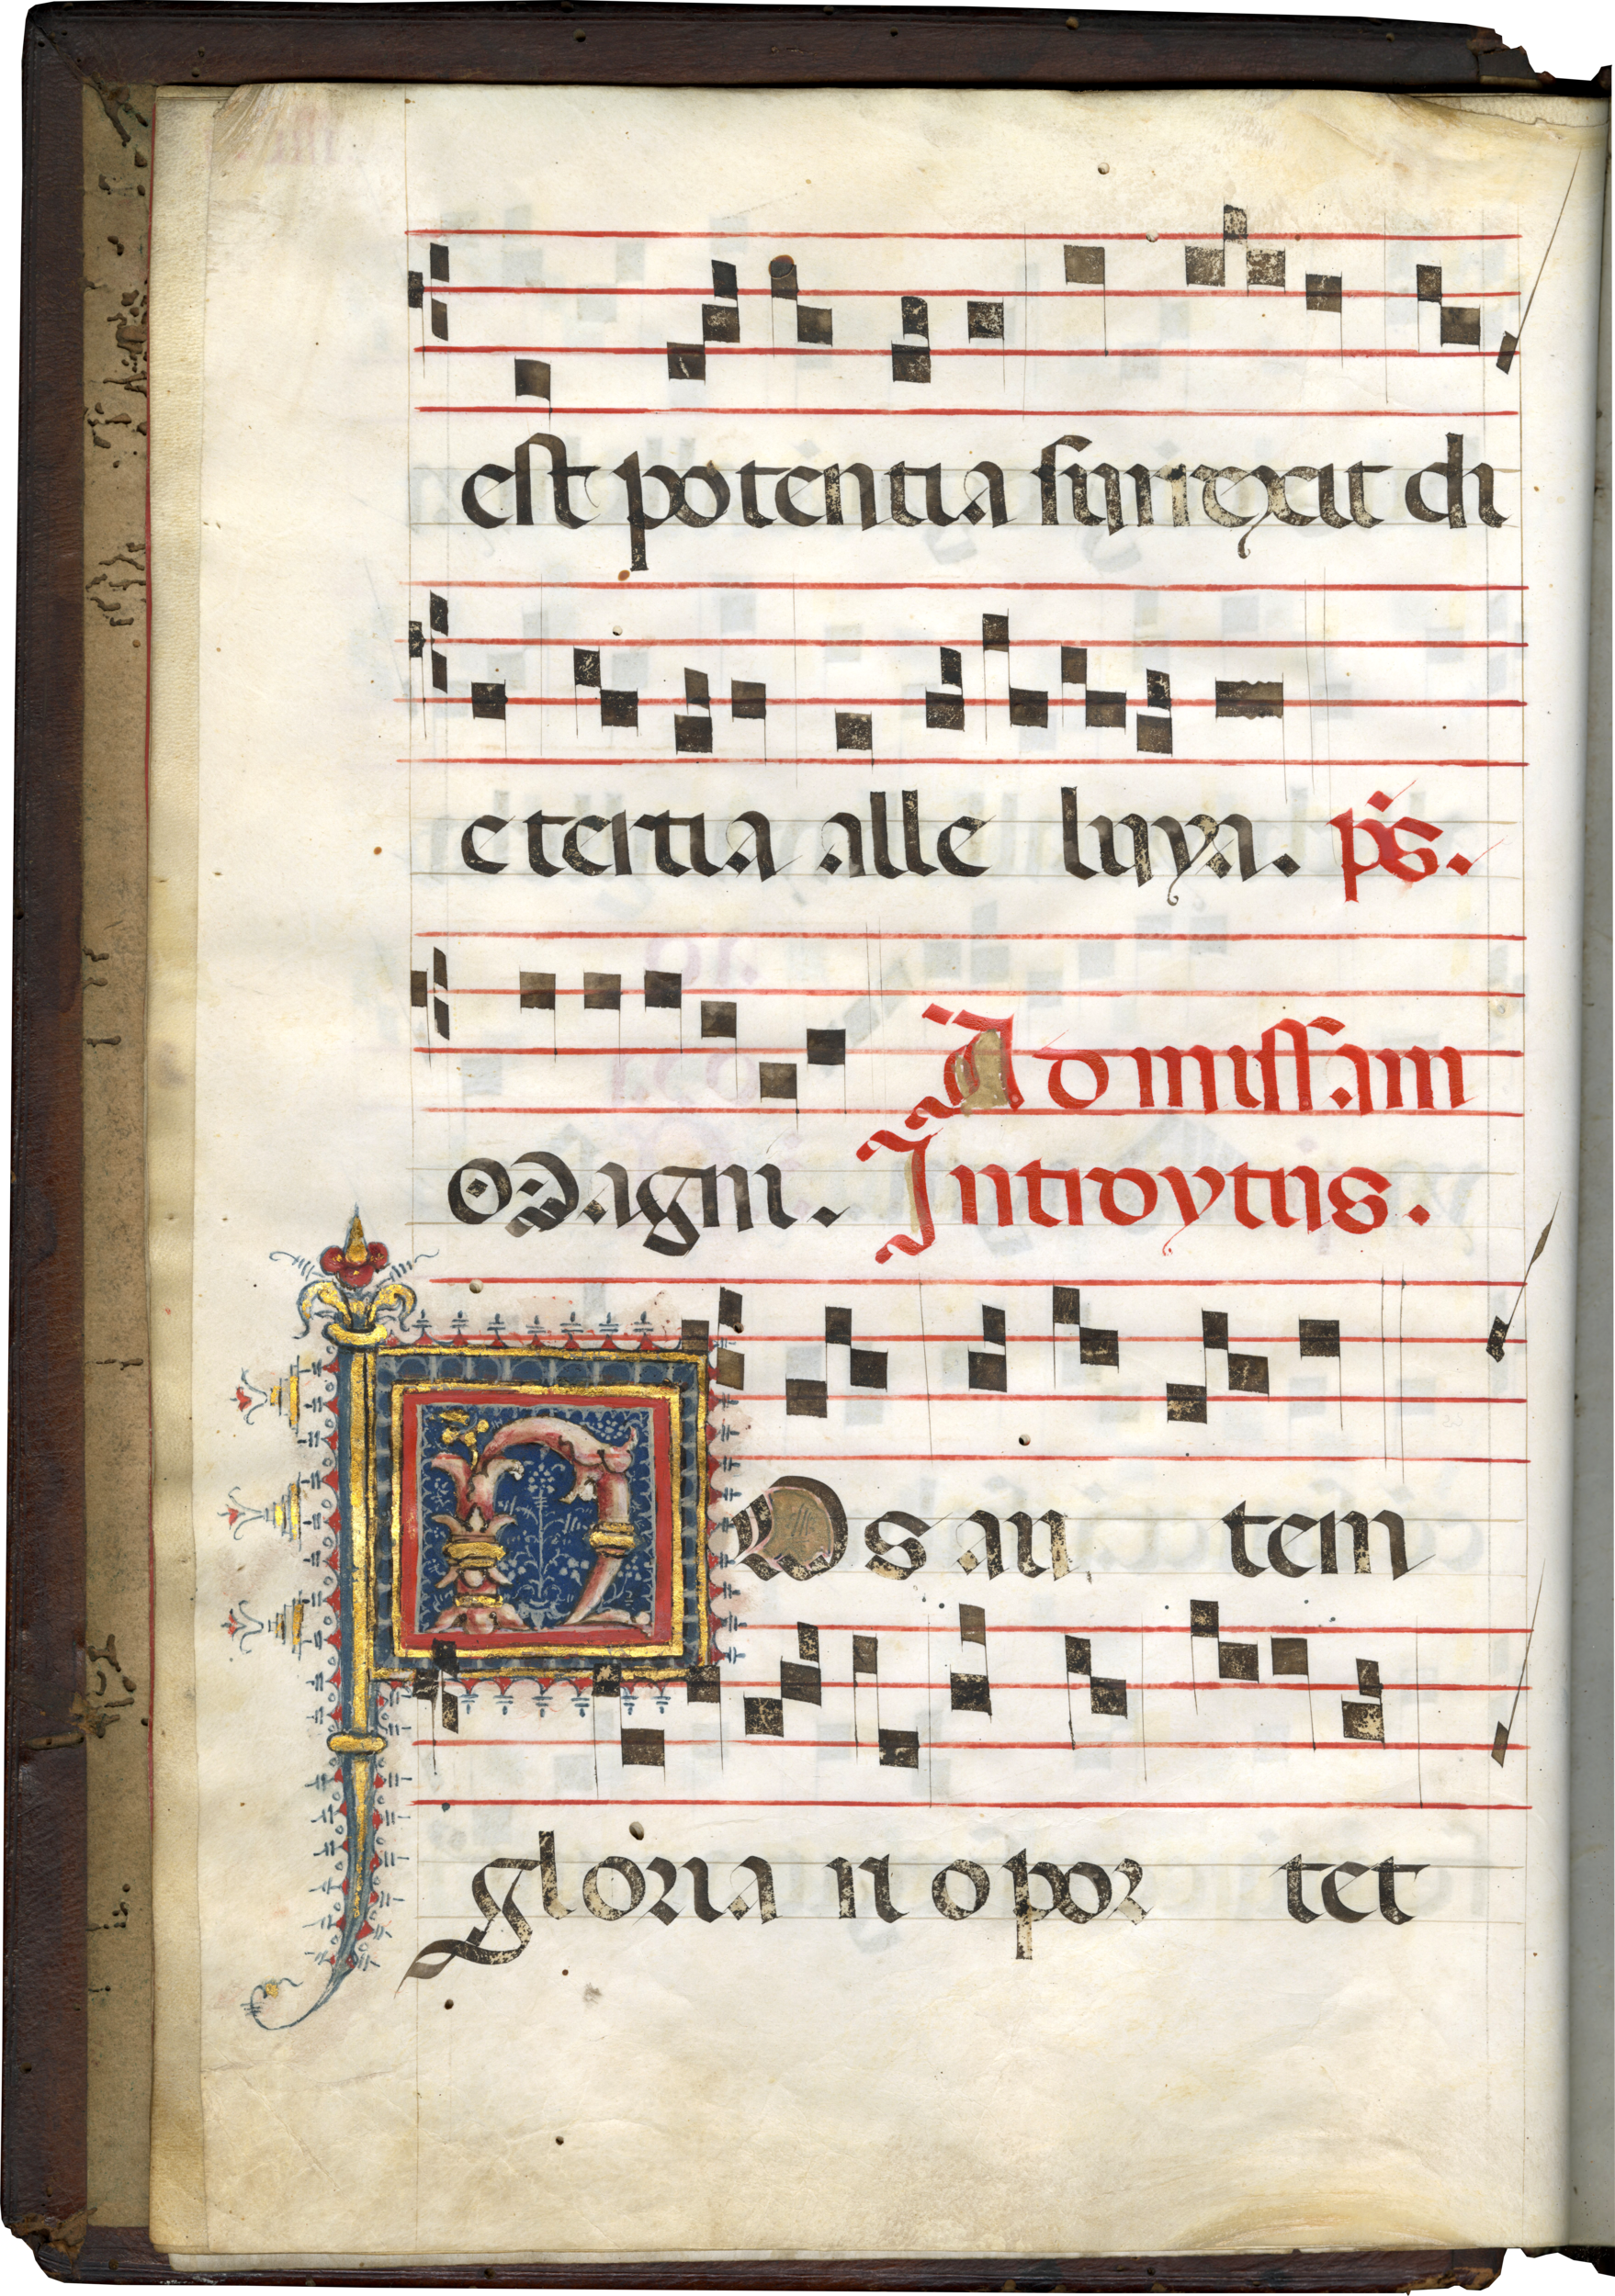 est potentia surrexit di
e tertia alle luya. ps.
Ad missam
Magni. Introytus.
NOs au tem
gloria ri opor tet